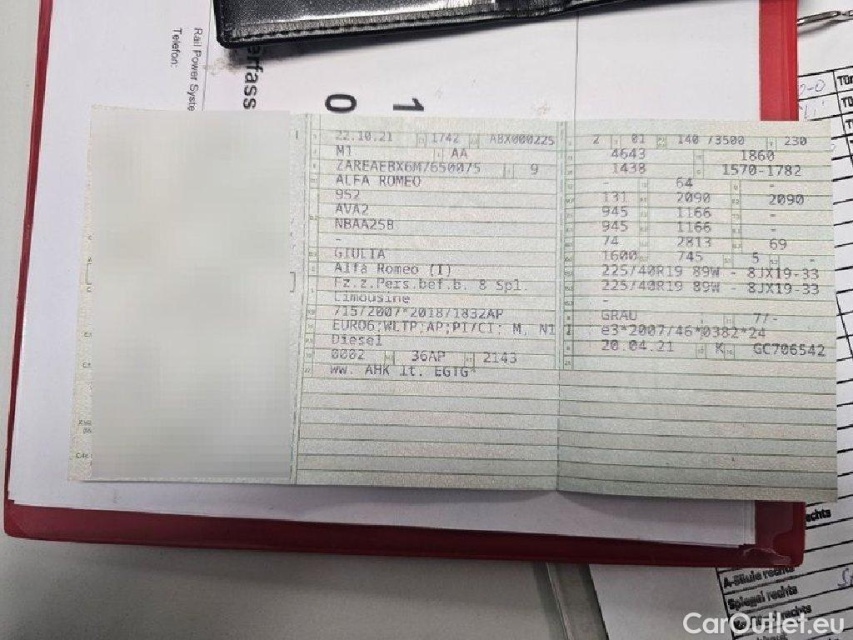 Rail Power Syste
Telefon:
erfass
0 1
22.10.21 1742 ABX000225
M1 AA
ZAREAEBX6M7650075 9
ALFA ROMEO
952
AVA2
NBAA25B
-
GIULIA
Alfa Romeo (I)
Fz.z.Pers.bef.b. 8 Spl
Limousine
715/2007*2018/1832AP
EURO6;WLTP;AP;PI/CI; M, N1 I
Diesel
0002 36AP 2143
ww. AHK lt. EGTG*
2 01 140 /3500 230
4643 1860
1438 1570-1782
- 64 -
131 2090 2090
945 1166 -
945 1166 -
74 2813 69
1600 745 5 -
225/40R19 89W - 8JX19-33
225/40R19 89W - 8JX19-33
-
GRAU 7/-
e3*2007/46*0382*24
20.04.21 K GC706542
A-Säule rechts
Spiegel rechts
rechts
CarOutlet.eu